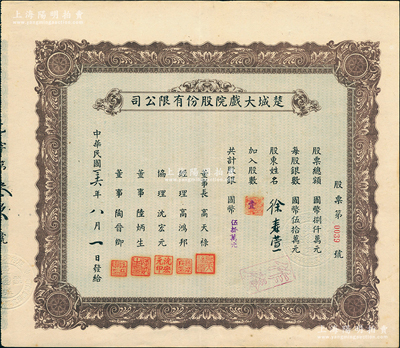 司公限有份股院戲大城楚
股票第0039號
股票總額 國幣捌仟萬元
每股銀數 國幣伍拾萬元
股東姓名 徐春萱
加入股數 壹
共計股銀 國幣伍拾萬元
董事長 高天棣
經理 高鴻邦
協理 沈宏元
董事 陸炳生
董事 陶晉卿
中華民國 年八月一日發給